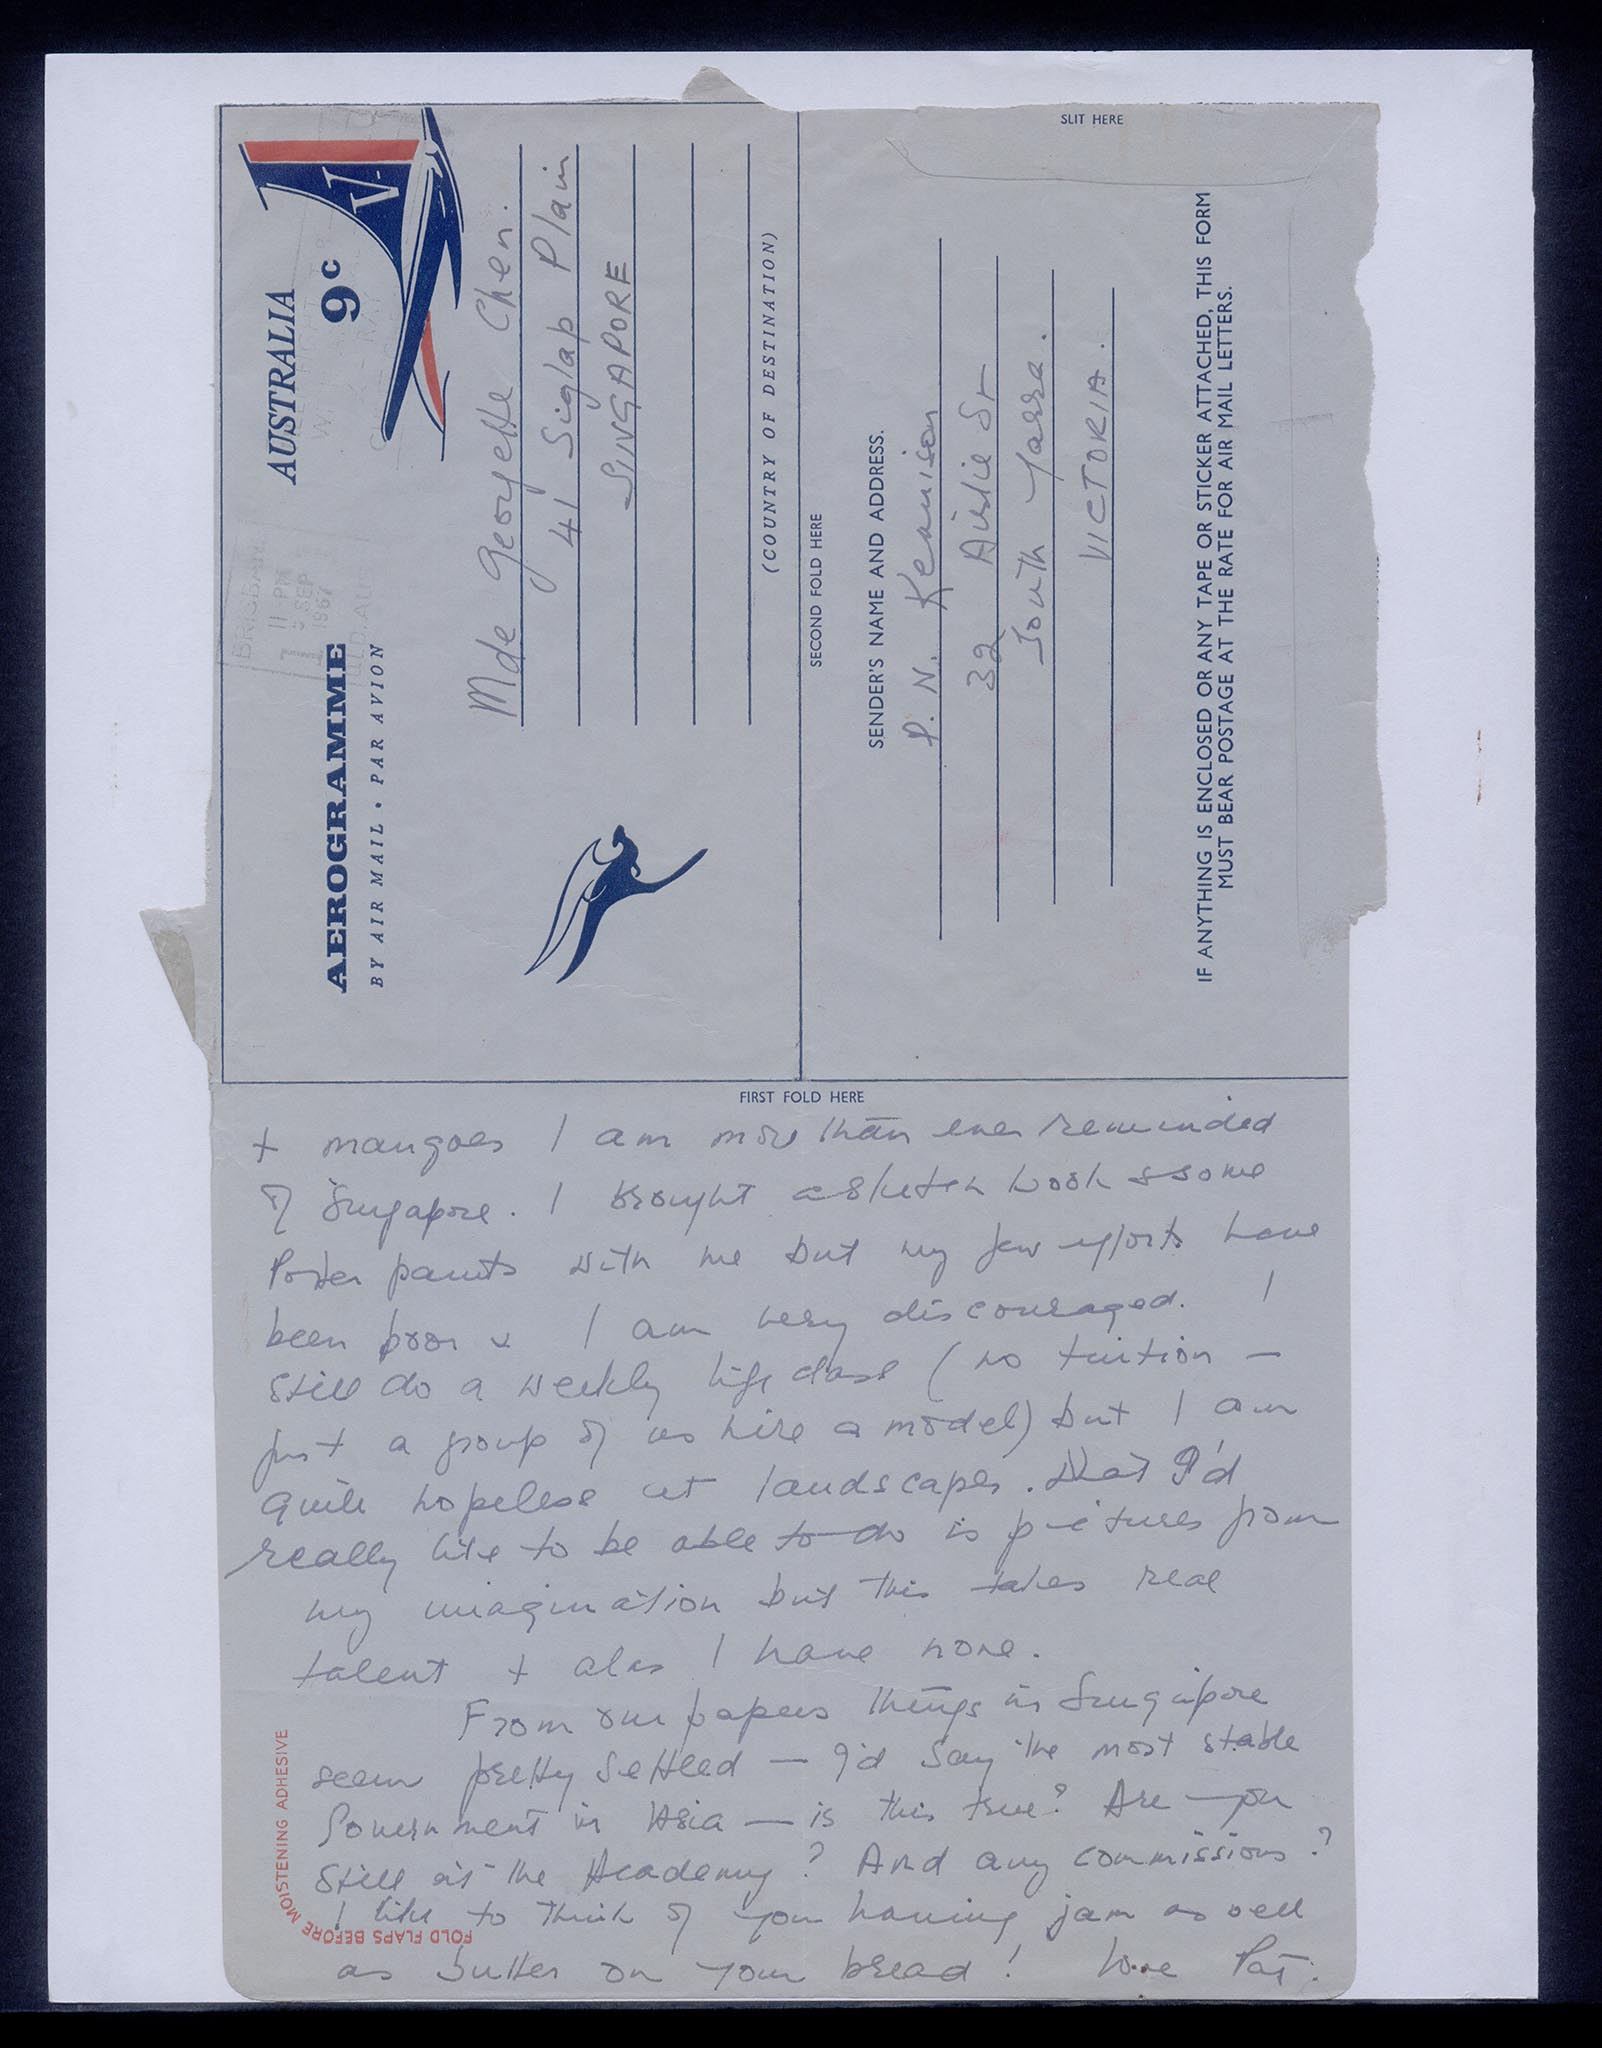 AUSTRALIA
9c
V
AEROGRAMME
BY AIR MAIL • PAR AVION
BRISBANE
11 - PM
SEP
1967
Mde Georgette Chen.
41 Siglap Plain
SINGAPORE
(COUNTRY OF DESTINATION)
SECOND FOLD HERE
SENDER'S NAME AND ADDRESS.
P. N. Kennison
32 Airlie St
South Yarra.
VICTORIA.
IF ANYTHING IS ENCLOSED OR ANY TAPE OR STICKER ATTACHED, THIS FORM
MUST BEAR POSTAGE AT THE RATE FOR AIR MAIL LETTERS.
SLIT HERE
FIRST FOLD HERE
+ mangoes I am more than ever reminded
of Singapore. I brought a sketch book & some
Poster paints with me but my few efforts have
been poor & I am very discouraged. I
still do a weekly life class (no tuition —
just a group of us hire a model) but I am
quite hopeless at landscapes. What I'd
really like to be able to do is pictures from
my imagination but this takes real
talent + alas I have none.
From our papers things in Singapore
seem pretty settled — I'd say the most stable
Government in Asia — is this true? Are you
still at the Academy? And any commissions?
I like to think of you having jam as well
as butter on your bread! Love Pat.
FOLD FLAPS BEFORE MOISTENING ADHESIVE